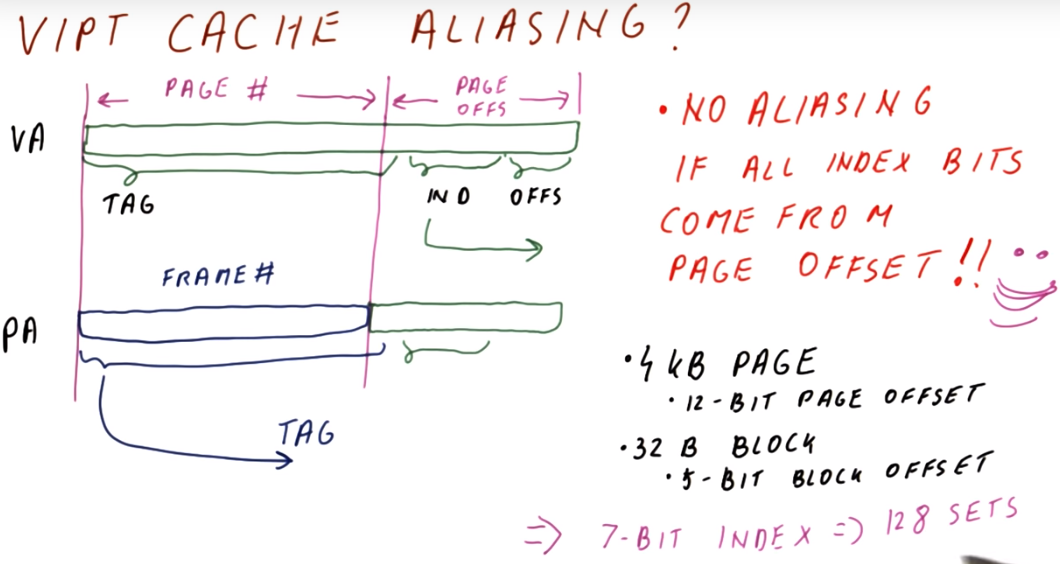 VIPT CACHE ALIASING?
PAGE #
PAGE
OFFS
VA
TAG
IND
OFFS
FRAME#
PA
TAG
• NO ALIASING
IF ALL INDEX BITS
COME FROM
PAGE OFFSET!!
• 4 kB PAGE
• 12-BIT PAGE OFFSET
• 32 B BLOCK
• 5-BIT BLOCK OFFSET
=> 7-BIT INDEX => 128 SETS